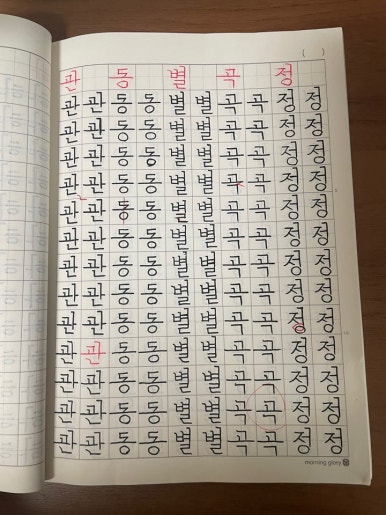 ( )
관 동 별 곡 정
관 관 동 동 별 별 곡 곡 정 정
관 관 동 동 별 별 곡 곡 정 정
관 관 동 동 별 별 곡 곡 정 정
관 관 동 동 별 별 곡 곡 정 정
관 관 동 동 별 별 곡 곡 정 정
관 관 동 동 별 별 곡 곡 정 정
관 관 동 동 별 별 곡 곡 정 정
관 관 동 동 별 별 곡 곡 정 정
관 관 동 동 별 별 곡 곡 정 정
관 관 동 동 별 별 곡 곡 정 정
관 관 동 동 별 별 곡 곡 정 정
관 관 동 동 별 별 곡 곡 정 정
관 관 동 동 별 별 곡 곡 정 정
morning glory